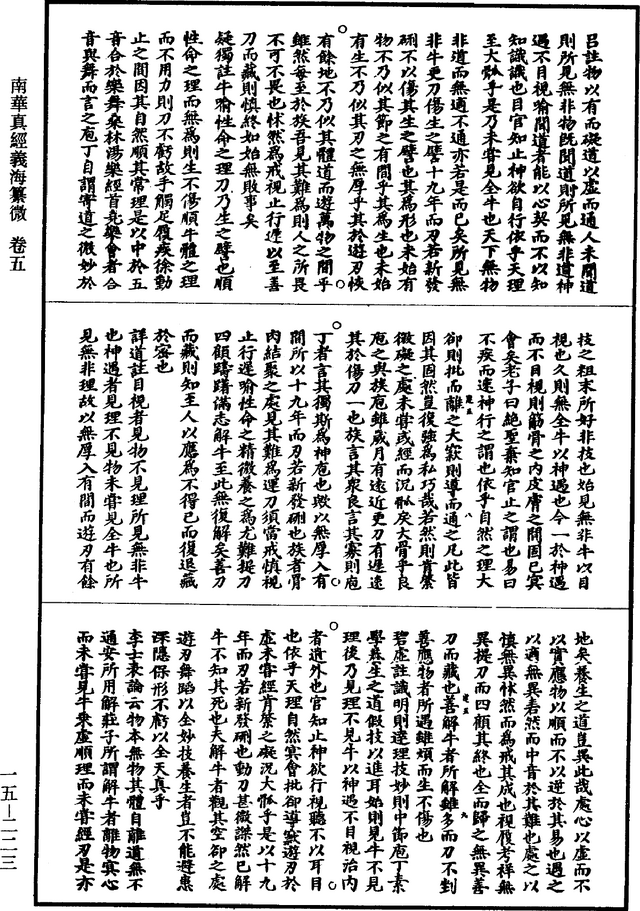 吕註物以有而礙道以虛而通人未聞道
則所見無非物既聞道則所見無非道神
遇不目視喻聞道者能以心契而不以知
知識識也目官知止神欲自行依乎天理
至大軱乎是乃未嘗見全牛也天下無物
非道而無適不通亦若是而已矣所見無
非牛更刀傷生之譬十九年而刃若新發
硎不以傷其生之譬也其為形也未始有
物不乃似其節之有間乎其為生也未始
有生不乃似其刃之無厚乎其於遊刃恢
有餘地不乃似其體道而遊萬物之間乎
雖然每至於族吾見其難為則人之所畏
不可不畏也怵然為戒視止行遲以至善
刀而藏則慎終如始無敗事矣
疑獨註牛喻性命之理刀乃生之譬也順
性命之理而無為則生不傷順牛體之理
而不用力則刀不虧故手觸足履疾徐動
止之間因其自然順其常理是以中於五
音合於樂舞桑林湯樂經首堯樂會者合
音與舞而言之庖丁自謂寄道之微妙於
技之粗末所好非技也始見無非牛以目
視也久則無全牛以神遇也今一於神遇
而不目視則筋骨之內皮膚之間固已㝠
會矣老子曰絕聖棄知官止之謂也易曰
不疾而速神行之謂也依乎自然之理大
郤則批而離之大窾則導而通之凡此皆
因其固然豈復強為私巧哉若然則肯綮
微礙之處未嘗或經而況軱戾大骨乎良
庖之與族庖雖歲月有遠近更刀有遲速
其於傷刀一也族言其衆良言其寡則庖
丁者言其獨斯為神庖也歟以無厚入有
間所以十九年而刃若新發硎也族者骨
內結聚之處見其難為運刀須當戒慎視
止行遲喻性命之精微養之為尤難提刀
四顧躊躇滿志解牛至此無復解矣善刀
而藏則知至人以應為不得已而復退藏
於密也
詳道註目視者見物不見理所見無非牛
也神遇者見理不見物未嘗見全牛也所
見無非理故以無厚入有間而遊刃有餘
地矣養生之道豈異此哉處心以虛而不
以實應物以順而不以逆於其易也遇之
以適無異砉然而中音於其難也處之以
慎無異怵然而為戒其成也視履考祥無
異提刀而四顧其終也全而歸之無異善
刀而藏也善解牛者所解雖多而刀不剉
善應物者所遇雖煩而生不傷也
碧虛註識明則達理技妙則中節庖丁素
學養生之道假技以進耳始則見牛不見
理後乃見理不見牛以神遇不目視冶內
者遺外也官知止神欲行視聽不以耳目
也依乎天理自然㝠會批郤導窾遊刃於
虛未嘗經肯綮之礙況大軱乎是以十九
年而刃若新發硎也動刀甚微謋然已解
牛不知其死也夫解牛者觀其空郤之處
遊刃舞蹈以全妙技養生者豈不能避患
深隱保形不虧以全天真乎
李士表論云物本無物其體自離道無不
通安所用解莊子所謂解牛者離物㝠心
而未嘗見牛乘虛順理而未嘗經刃是亦
南華真經義海纂微 卷五
一五—二二三